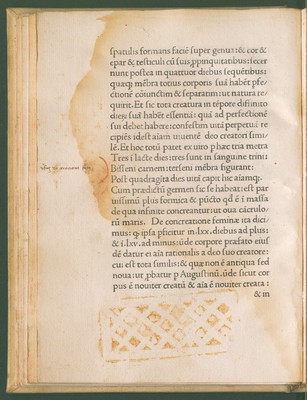 spatulis formans faciē super genua: & cor &
epar & testiculi cū suis ,ppinquitatibus: fecer
nunt postea in quattuor diebus seqūētibus:
quæqȝ mēbra totius corporis suā habēt pfe-
ctionē cōiunctim & separatim: ut natura re-
quirit. Et sic tota creatura in tēpore diffinito
dieȝ suā habēt essentiā: quā ad perfectionē
sui debēt habere: confestim uitā perpetuā re
cipiēs idest aíam uiuentē deo creatori simi-
lē. Et hoc totū patet ex uiro p hæc tria metra
Tres ī lacte dies: tres sunt in sanguine trini:
Bisseni carnem: terseni mēbra figurant:
Post quadragīta dies uitā capit hic aíamqȝ.
Cum prædictū germen sic se habeat: est par
uissimū plus formica & pūcto qd ē ī massa
de qua infinite concreantur: ut oua cáculo-
rū maris. De concreatione feminæ ita dici-
mus: q, ipsa pficitur in .lxx. diebus ad plus:
& i .lxv. ad minus: ūde corpore prafato eius
dē datur ei aía rationalis a deo suo creatore:
cui est tota similis: & quæ non ē antiqua sed
noua: ut ,pbatur p Augustinū. ūde sicut cor
pus ē nouiter creatū & aía ē nouiter creata :
& in